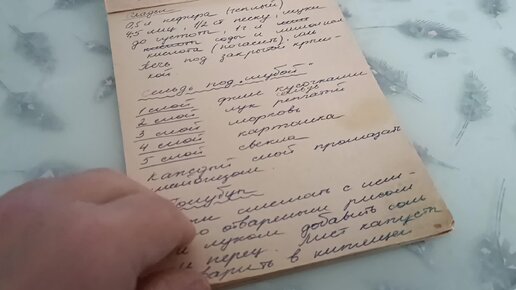 Оладьи
0,5 л кефира (теплый)
4-5 яиц, 1/2 ст песку, муки
до густоты, 1 ч л
соды и лимонная
кислота (погасить), соль
Печь под закрытой крыш-
кой.
Сельдь под „шубой"
1 слой филе кусочками
сельдь
2 слой лук репчатый
3 слой морковь
4 слой картошка
5 слой свекла
Каждый слой промазать
майонезом.
Голубцы
смешать с
отваренным рисом
и луком добавить соль
и перец. Лист капусты
варить в кипящей